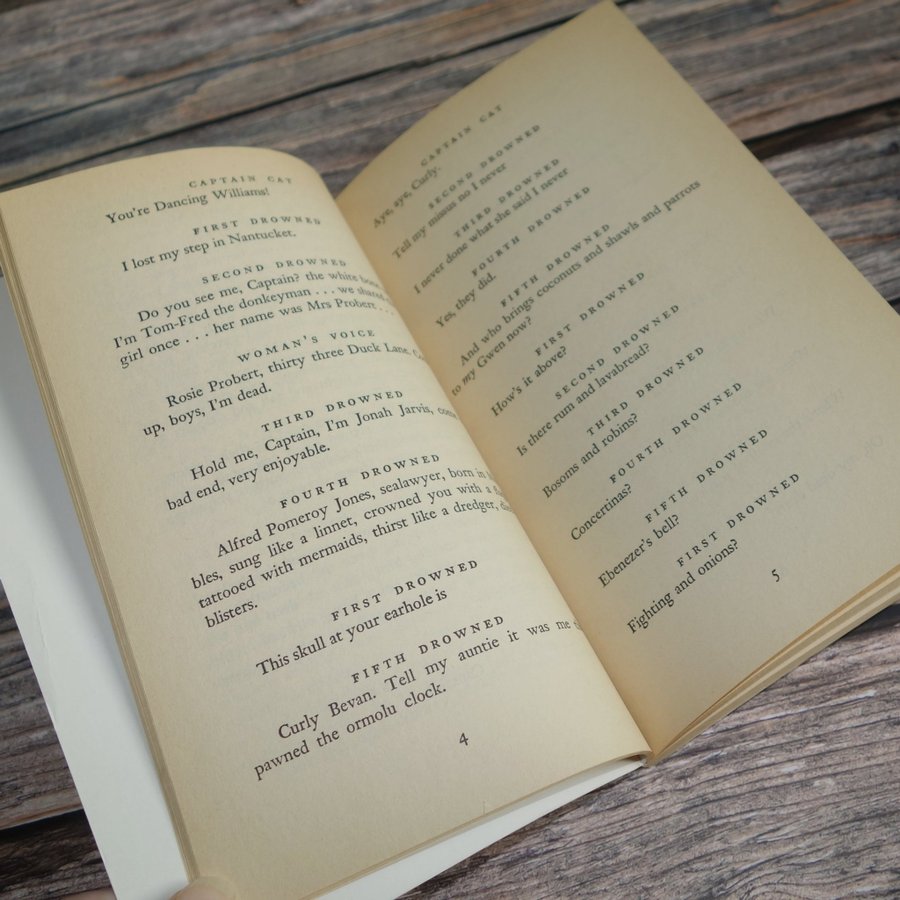 CAPTAIN CAT
You're Dancing Williams!
FIRST DROWNED
I lost my step in Nantucket.
SECOND DROWNED
Do you see me, Captain? the white bone
I'm Tom-Fred the donkeyman . . . we shared
girl once . . . her name was Mrs Probert . . .
WOMAN'S VOICE
Rosie Probert, thirty three Duck Lane.
up, boys, I'm dead.
THIRD DROWNED
Hold me, Captain, I'm Jonah Jarvis, come
bad end, very enjoyable.
FOURTH DROWNED
Alfred Pomeroy Jones, sealawyer, born in
bles, sung like a linnet, crowned you with a
tattooed with mermaids, thirst like a dredger,
blisters.
FIRST DROWNED
This skull at your earhole is
FIFTH DROWNED
Curly Bevan. Tell my auntie it was me
pawned the ormolu clock.
4
CAPTAIN CAT
Aye, aye, Curly.
SECOND DROWNED
Tell my missus no I never
THIRD DROWNED
I never done what she said I never
FOURTH DROWNED
Yes, they did.
FIFTH DROWNED
And who brings coconuts and shawls and parrots
to my Gwen now?
FIRST DROWNED
How's it above?
SECOND DROWNED
Is there rum and lavabread?
THIRD DROWNED
Bosoms and robins?
FOURTH DROWNED
Concertinas?
FIFTH DROWNED
Ebenezer's bell?
FIRST DROWNED
Fighting and onions?
5